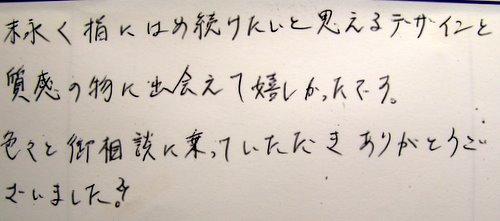 末永く指にはめ続けたいと思えるデザインと
質感の物に出会えて嬉しかったです。
色々と御相談に乗っていただきありがとうご
ざいました。